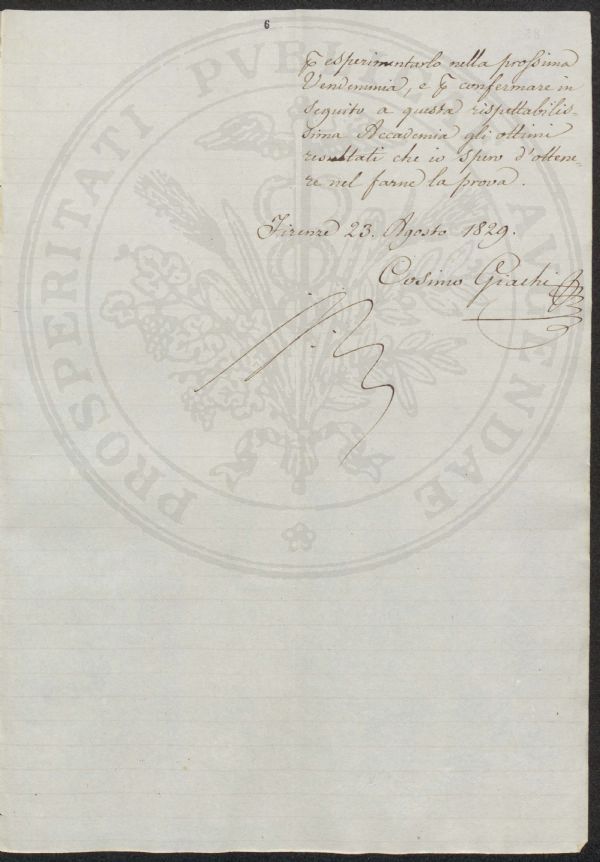 6
PROSPERITATI PVBLICAE AVGENDAE
ꝑ esperimentarlo nella prossima
Vendemmia, e ꝑ confermare in
seguito a questa rispettabilis-
sima Accademia gli ottimi
resultati che io spero d'ottene-
re nel farne la prova.
Firenze 23. Agosto 1829.
Cosimo Giachi